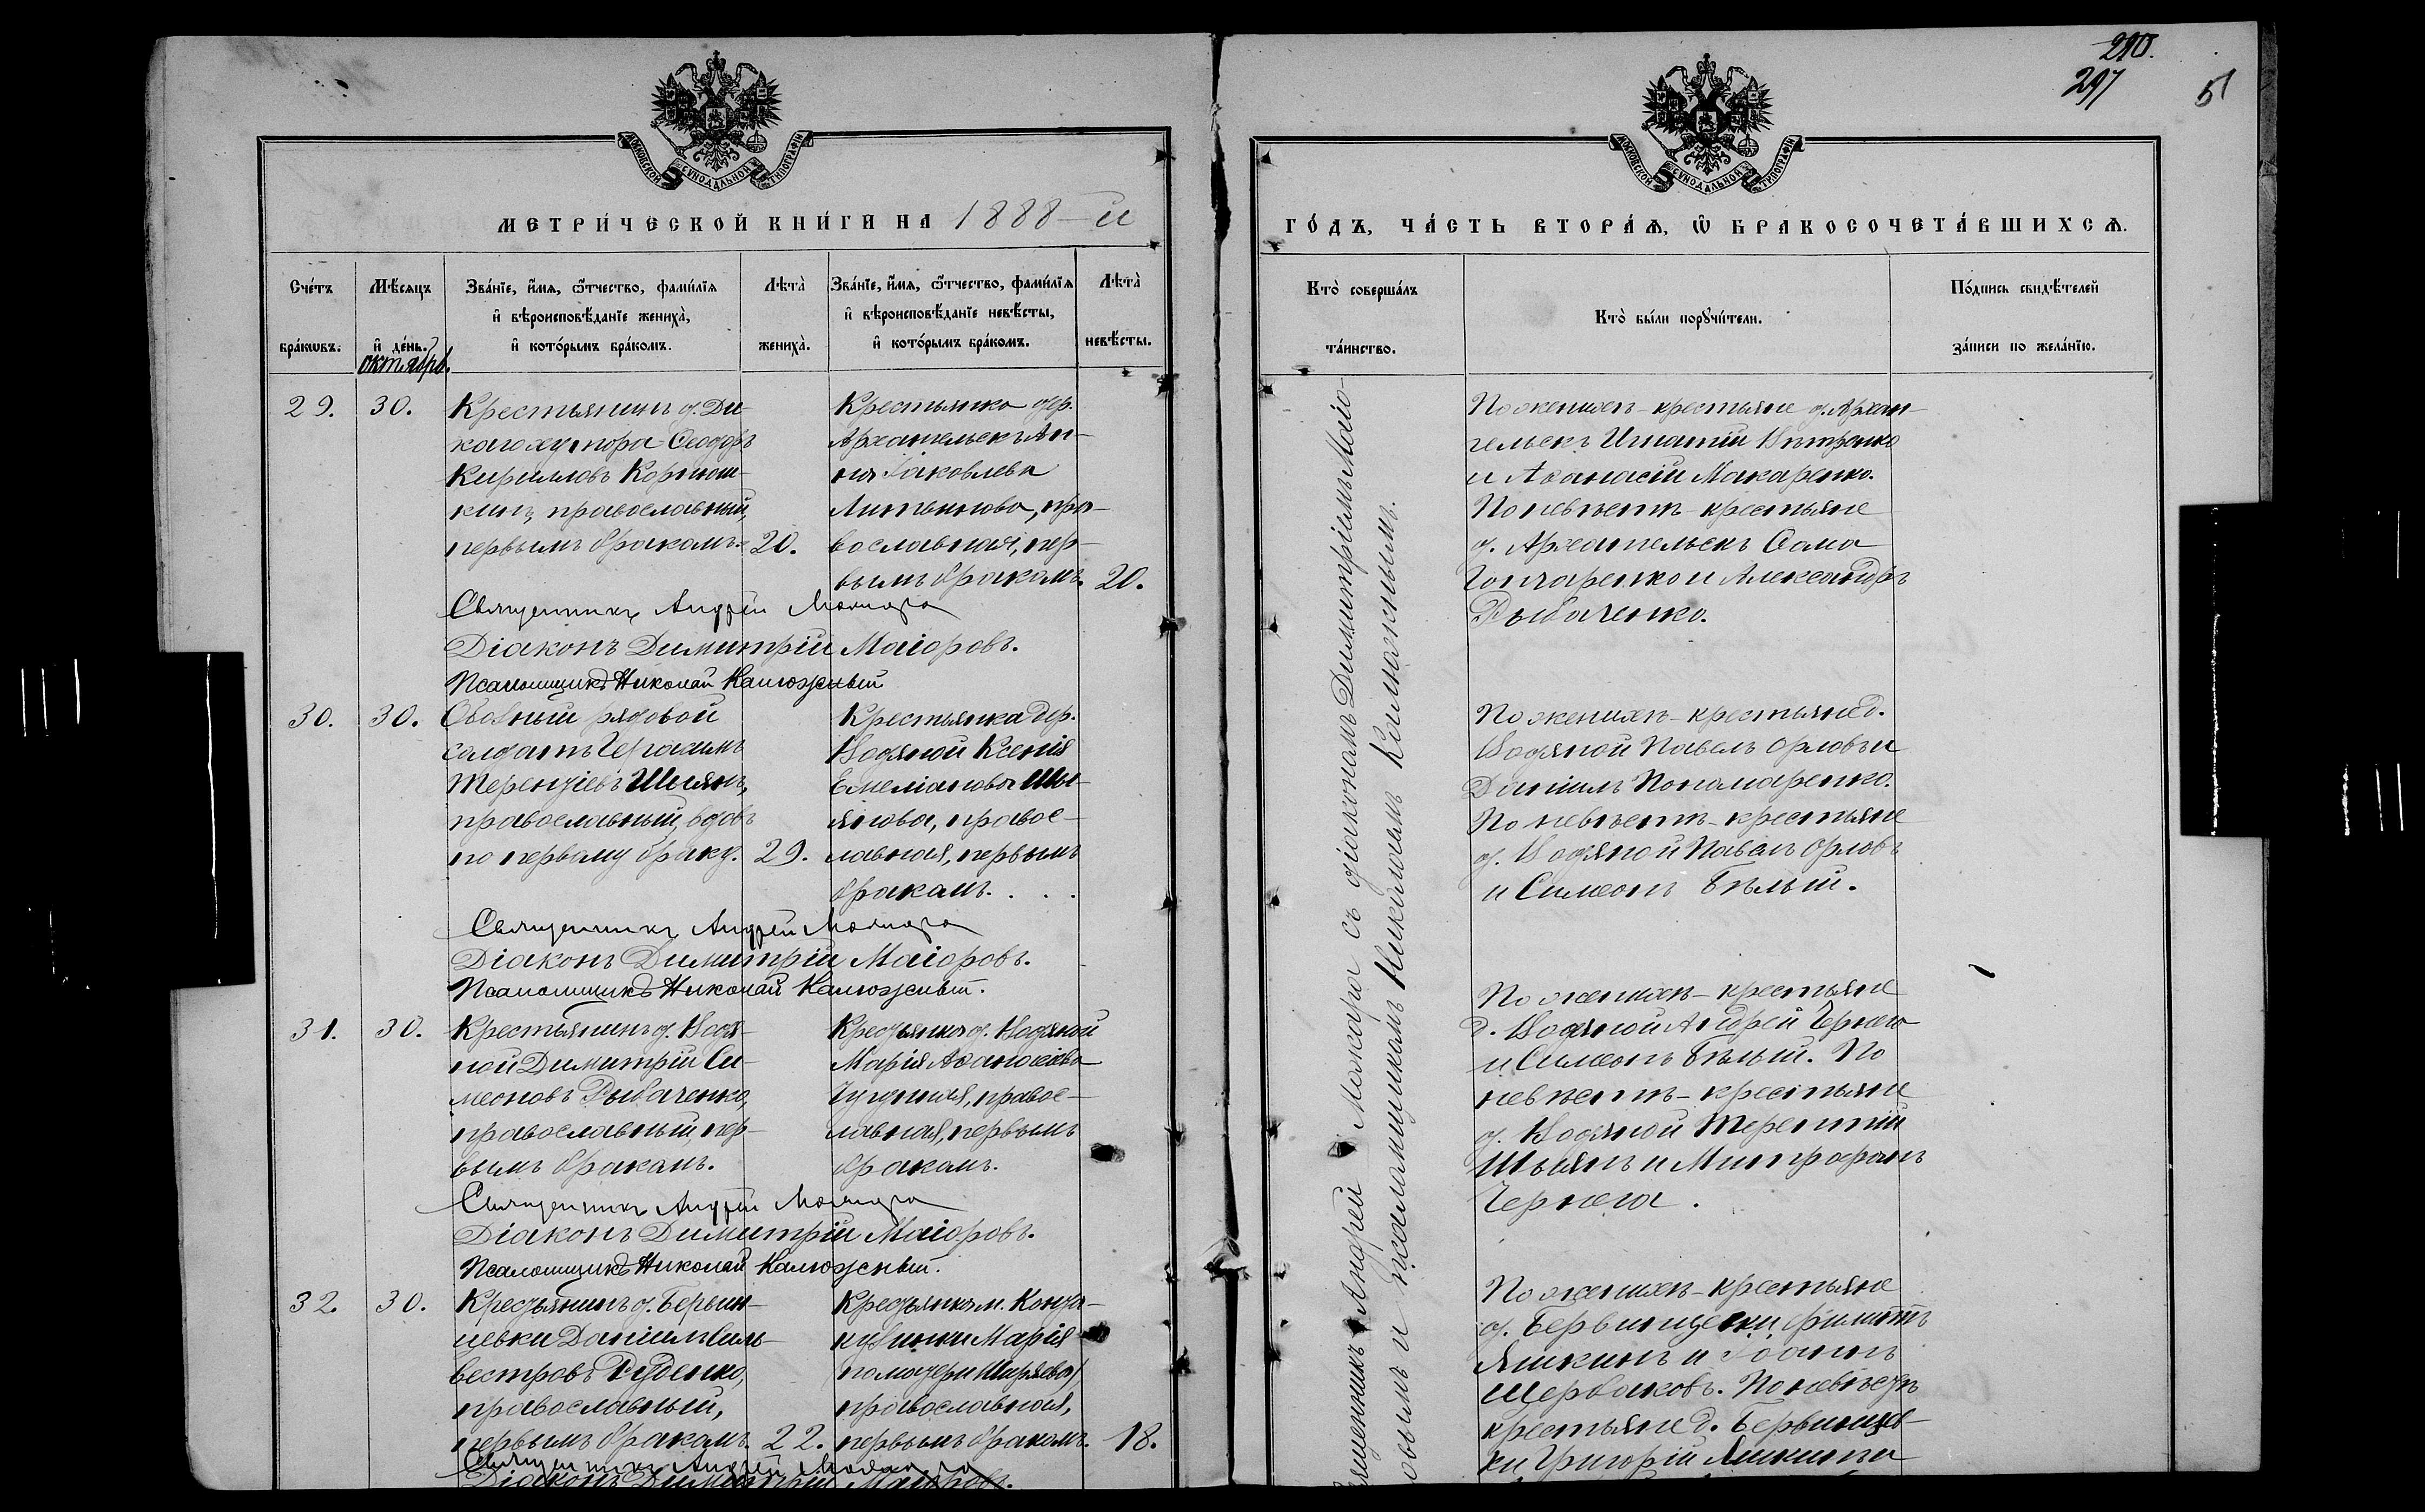 290.
297
51
МОСКОВСКОЙ СѴНОДАЛЬНОЙ ТИПОГРАФІИ
МЕТРИ́ЧЕСКОЙ КНИ́ГИ НА 1888-й
Сче́тъ бра́кѡвъ.
Мѣ́сяцъ и҆ де́нь.
октябрь.
Зва́нїе, и҆́мя, ѻ҆́тчество, фами́лїя
и҆ вѣроисповѣ́данїе жениха̀,
и҆ кото́рымъ бра́комъ.
Лѣта̀
жениха̀.
Зва́нїе, и҆́мя, ѻ҆́тчество, фами́лїя
и҆ вѣроисповѣ́данїе невѣ́сты,
и҆ кото́рымъ бра́комъ.
Лѣта̀
невѣ́сты.
29.
30.
Крестьянинъ д. Ди-
каго хутора Ѳеодоръ
Кирилловъ Корнюш-
кинъ, православный,
первымъ бракомъ.
20.
Крестьянка дер.
Архангельскъ Ан-
на Іаковлева
Литвинова, пра-
вославная, пер-
вымъ бракомъ.
20.
Священникъ Андрей
Діаконъ Димитрій Маіоровъ.
Псаломщикъ Николай Калюжный
30.
30.
рядовой
солдатъ Герасимъ
Терентіевъ Шиянъ,
православный, вдовъ
по первому браку.
29.
Крестьянка дер.
Водяной Ксенія
Емеліанова Ши-
янова, правос-
лавная, первымъ
бракомъ. . .
Священникъ Андрей
Діаконъ Димитрій Маіоровъ.
Псаломщикъ Николай Калюжный.
31.
30.
Крестьянинъ д. Водя-
ной Димитрій Си-
меоновъ Рыбаченко,
православный, пер-
вымъ бракомъ.
Крестьянка д. Водяной
Марія Аѳанасіева
правос-
лавная, первымъ
бракомъ.
Священникъ Андрей
Діаконъ Димитрій Маіоровъ.
Псаломщикъ Николай Калюжный.
32.
30.
Крестьянинъ д. Бервин-
цевки Даніилъ Силь-
вестровъ Руденко,
православный,
первымъ бракомъ.
22.
Крестьянка м.
Марія
по матери Ширяева,
православная,
первымъ бракомъ.
18.
Священникъ Андрей
Діаконъ Димитрій Маіоровъ.
МОСКОВСКОЙ СѴНОДАЛЬНОЙ ТИПОГРАФІИ
ГО́ДЪ, ЧА́СТЬ ВТОРА́Ѧ, Ѽ БРАКОСОЧЕТА́ВШИХСѦ.
Кто̀ соверша́лъ
та́инство.
Кто̀ бы́ли порꙋчи́тели.
По́дпись свидѣ́телей
за́писи по жела́нїю.
Андрей съ діакономъ Димитріемъ Маіо-
ровымъ и псаломщикомъ Николаемъ Калюжнымъ.
По женихѣ - крестьяне д. Архан-
гельскъ Игнатій Петренко
и Аѳанасій Макаренко.
По невѣстѣ - крестьяне
д. Архангельскъ Сава
Гончаренко и Александръ
Рыбаченко.
По женихѣ - крестьяне д.
Водяной Павелъ Орловъ и
Даніилъ Пономаренко.
По невѣстѣ - крестьяне
д. Водяной Павелъ Орловъ
и Симеонъ Бѣлый.
По женихѣ - крестьяне
д. Водяной Андрей Чернега
и Симеонъ Бѣлый. По
невѣстѣ - крестьяне
д. Водяной Терентій
Шиянъ и Митрофанъ
Чернега.
По женихѣ - крестьяне
д. Бервинцевки Филиппъ
Яшкинъ и Іоаннъ
Щербаковъ. По невѣстѣ
крестьяне д. Бервинцев-
ки Григорій